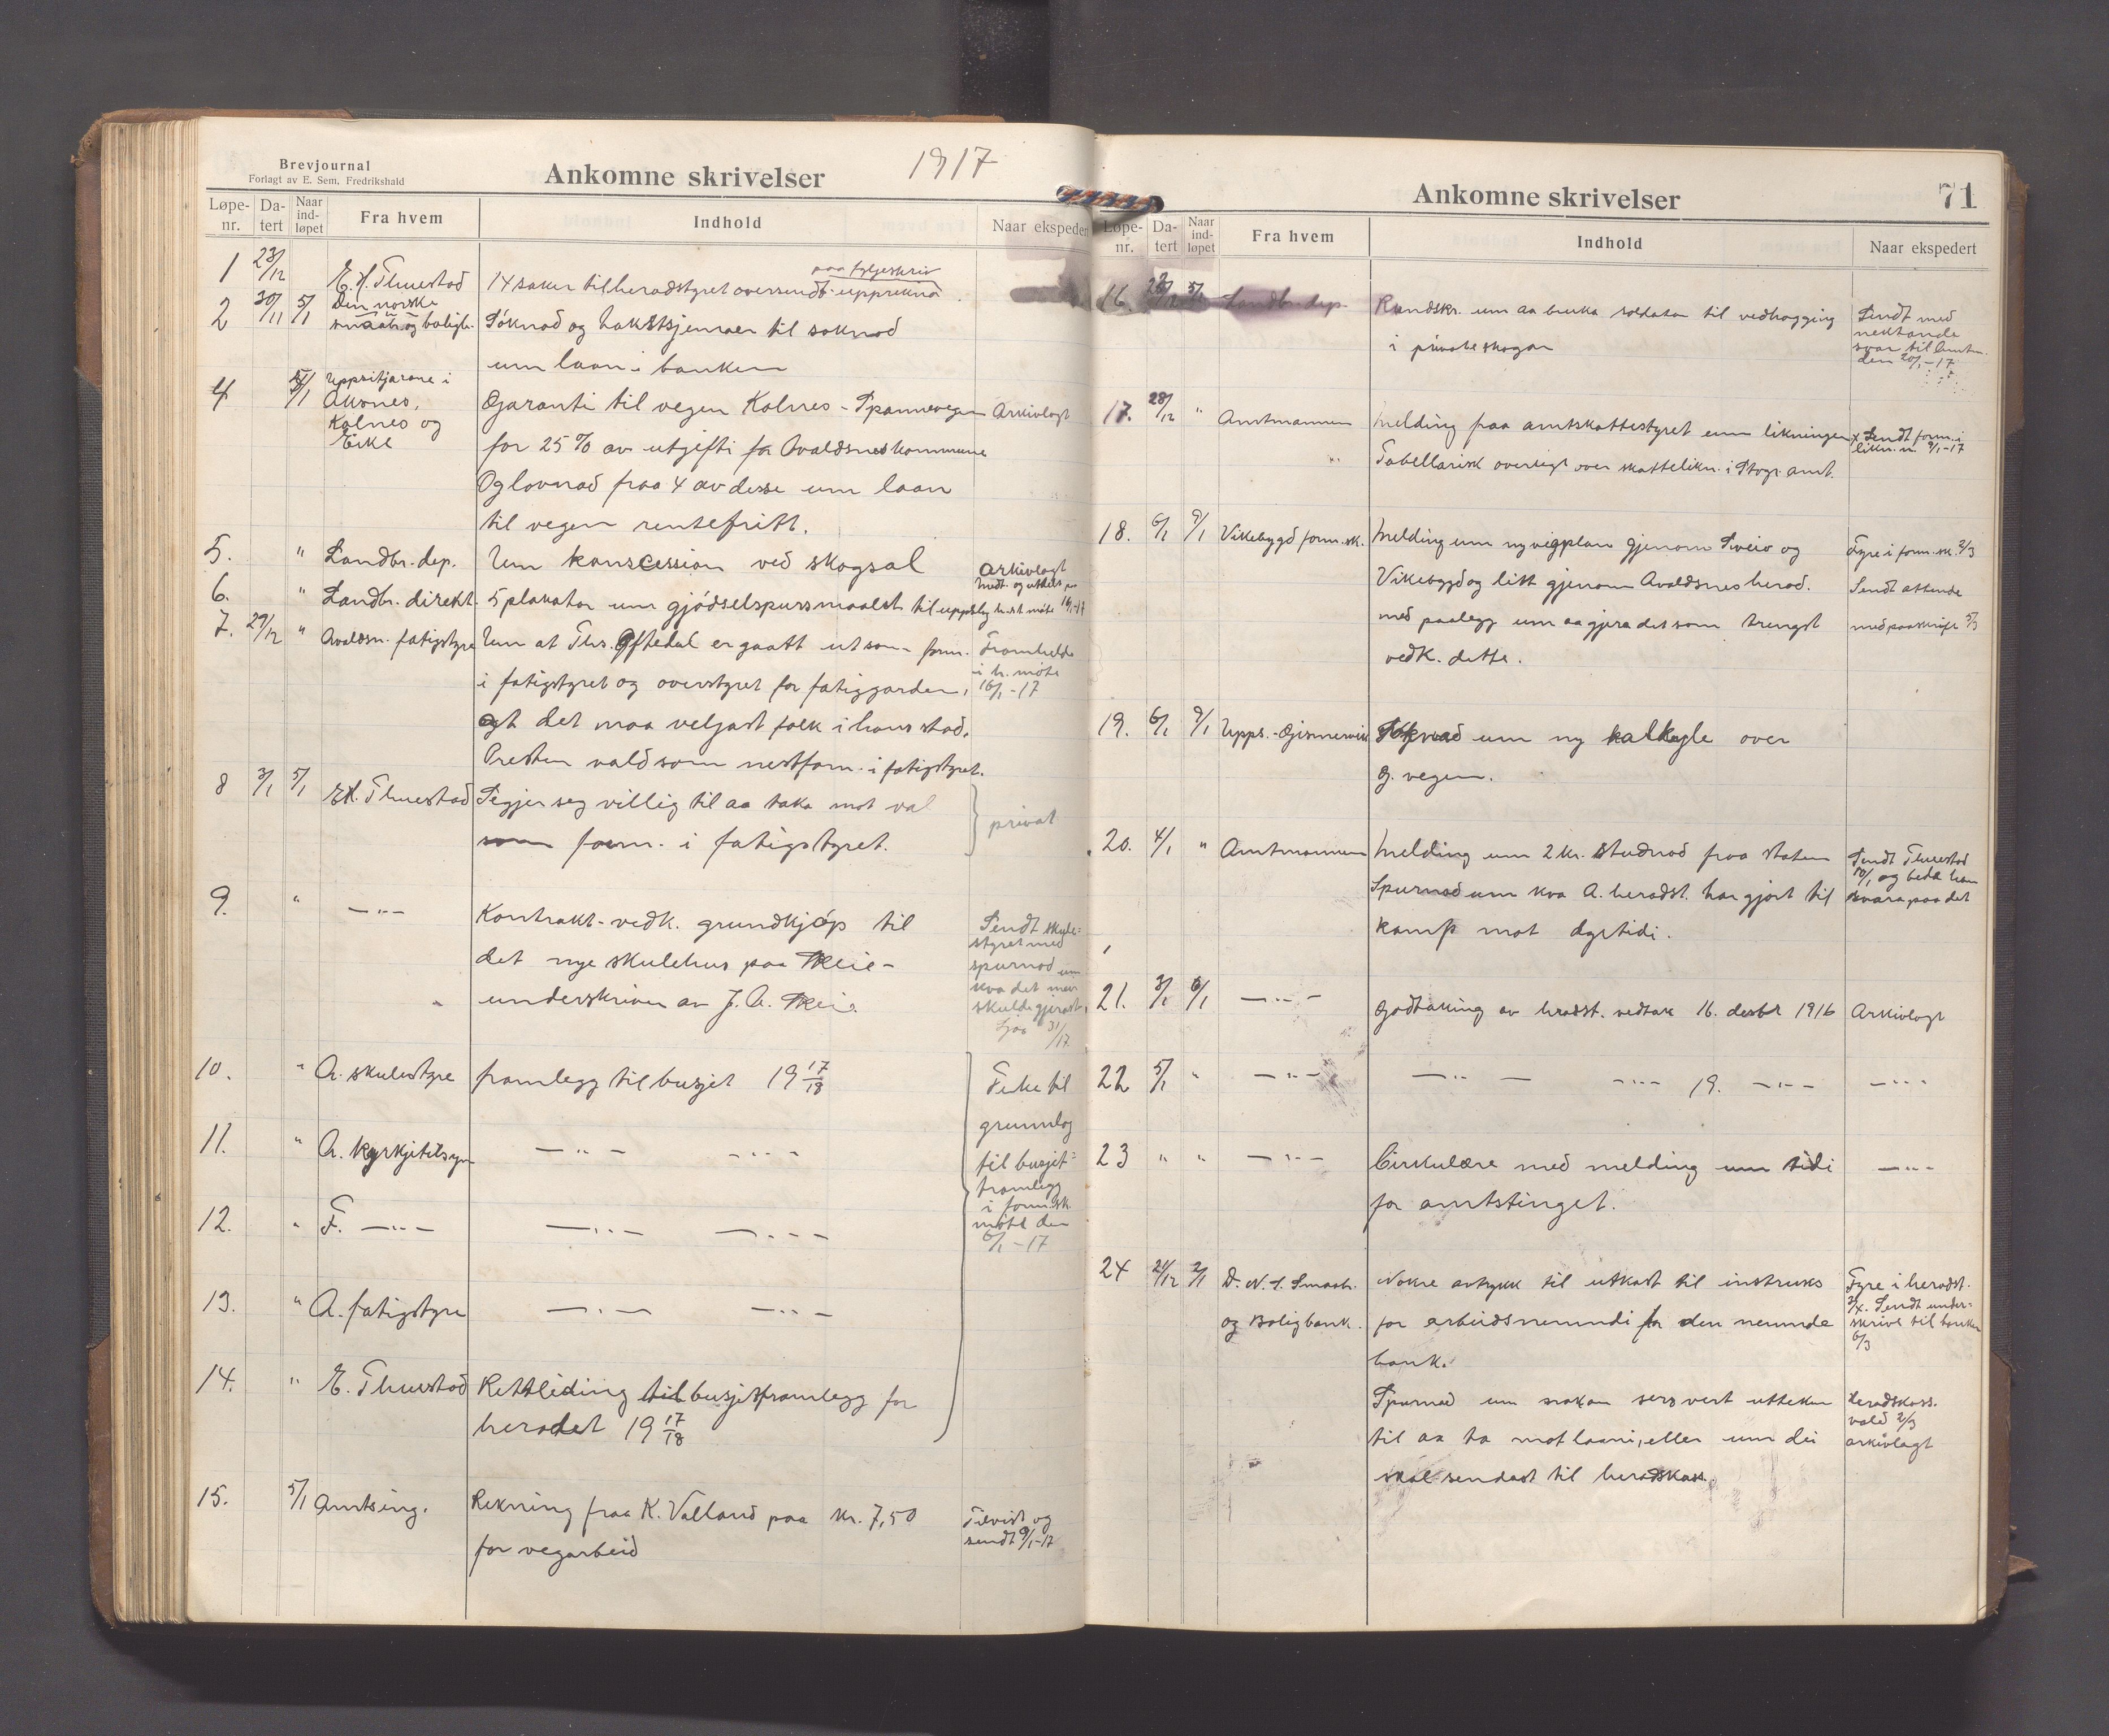 Brevjournal
Forlagt av E. Sem, Fredrikshald
Ankomne skrivelser 1917
Løpe-nr. Da-tert Naar ind-løpet Fra hvem Indhold Naar ekspedert
1 28/12 E. H. Thuestad 14 saker til heradstyret oversendt paa fylgjeskriv upprekna.
2 30/11 5/1 Den norske smaab. og boligb. Söknad og takstskjemaer til söknad
um laan i banken
4 5/1 Uppsitjarane i Garanti til vegen Kolnes - Spannevegen Arkivlagt
Aksnes,
Kolnes og
Eike
for 25 % av utgifti for Avaldsnes kommune
Og lovnad fraa 4 av desse um laan
til vegen rentefritt.
5. " Landbr. dep. Um konscession ved skogsal arkivlagt
6. " Landbr. direkt. 5 plakatar um gjödselspursmaalet til uppslag h.st. möte 16/1-17
7. 29/12 " Avaldsn. fatigstyre Um at Ths. Gftedal er gaatt ut som form. Framhelde
i fatigstyret og overstyret for fatiggarden, i h. möte
16/1-17
og at det maa veljast folk i hans stad.
Presten vald som nestform. i fatigstyret.
8 3/1 5/1 E. H. Thuestad Segjer seg villig til aa taka mot val
som form. i fatigstyret. privat
9. " — " — Kontrakt - vedk. grundkjöp til Sendt skule-
styret med
det nye skulehus paa Reie - spurnad um
kva det meir
underskriven av J. A. Reie. skulde gjerast.
Sjaa 31/17
10. " A. skulestyre framlegg til busjet 19 17/18 Teke til
grunnlag
11. " A. kyrkjetilsyn — " — — " — til busjet-
framlegg
12. " F. — " — — " — — " — i form.sk.
möte den
6/1-17
13. " A. fatigstyre — " — — " —
14. " E. Thuestad Rettleiding til busjetframlegg for
heradet 19 17/18
15. 5/1 Amtsing. Rekning fraa K. Valland paa kr. 7,50 Tilvist og
for vegarbeid sendt 9/1-17
Ankomne skrivelser 71
Løpe-nr. Da-tert Naar ind-løpet Fra hvem Indhold Naar ekspedert
16. 28/12 5/1 Landbr. dep. Rundskr. um aa bruka soldatar til vedhogging Sendt med
nektande
i private skogar svar til Amtm.
den 20/1-17
17. 28/12 " Amtmannen Melding fraa amtskattestyret um likningen x Sendt form. i
likn.n. 9/1-17
" Tabellarisk oversigt over skattelikn. i Stvgr. amt.
18. 6/1 9/1 Vikebygd form.sk. Melding um ny vegplan gjenom Sveio og Fyre i form.sk. 2/3
Vikebygd og litt gjenom Avaldsnes herad. Sendt attende
med paalegg um aa gjera det som trengst med paaskrift 5/3
vedk. dette.
19. 6/1 9/1 Upps. - Gismervik Söknad um ny kalkyle over
G. vegen.
20. 4/1 " Amtmannen Melding um 2 kr. studnad fraa staten Sendt Thuestad
10/1 og bede han
Spurnad um kva A. heradst. har gjort til svara paa det
kamp mot dyrtidi.
21. 3/1 6/1 — " — Godtaking av hradst. vedtak 16. desbr 1916 Arkivlagt
22 5/1 " — " — — " — — " — 19. — " — — " —
23 " " — " — Cirkulære med melding um tidi — " —
for amtstinget.
24 21/12 2/1 D. N. S. Smaabr. Nokre avtrykk til utkast til instruks Fyre i heradst.
2/X. Sendt under-
og Boligbank. for arbeidsnemndi for den nemnde skrive til banken
6/3
bank.
Spurnad um nokon sers vert utteken Heradskass.
vald 2/3
til aa ta mot laani, eller um dei arkivlagt
skal sendast til heradskass.